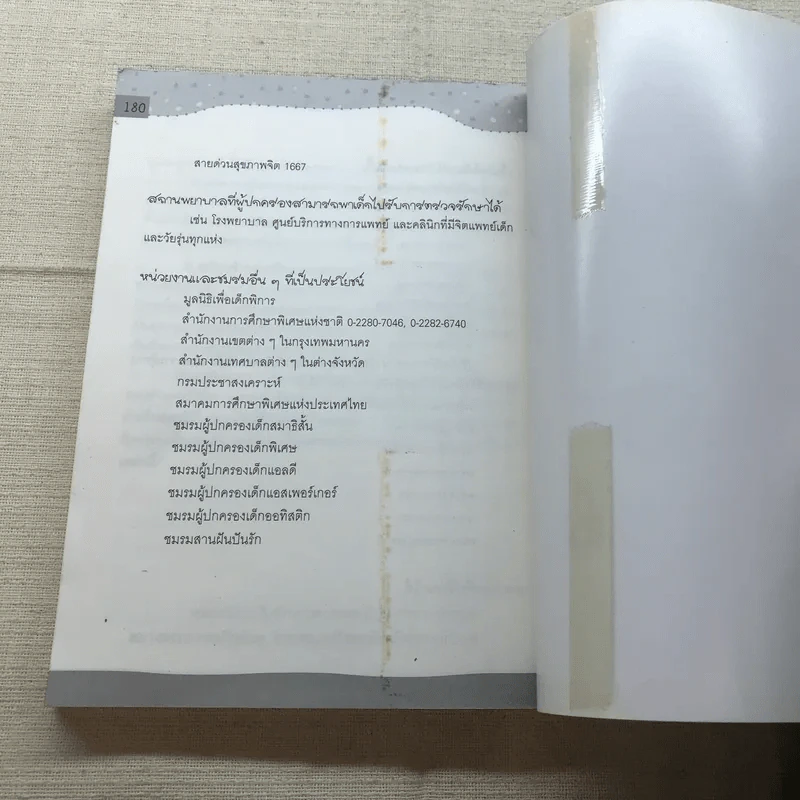 180
สายด่วนสุขภาพจิต 1667
สถานพยาบาลที่ผู้ปกครองสามารถพาเด็กไปรับการตรวจรักษาได้
เช่น โรงพยาบาล ศูนย์บริการทางการแพทย์ และคลินิกที่มีจิตแพทย์เด็ก
และวัยรุ่นทุกแห่ง
หน่วยงานและชมรมอื่น ๆ ที่เป็นประโยชน์
มูลนิธิเพื่อเด็กพิการ
สำนักงานการศึกษาพิเศษแห่งชาติ 0-2280-7046, 0-2282-6740
สำนักงานเขตต่าง ๆ ในกรุงเทพมหานคร
สำนักงานเทศบาลต่าง ๆ ในต่างจังหวัด
กรมประชาสงเคราะห์
สมาคมการศึกษาพิเศษแห่งประเทศไทย
ชมรมผู้ปกครองเด็กสมาธิสั้น
ชมรมผู้ปกครองเด็กพิเศษ
ชมรมผู้ปกครองเด็กแอลดี
ชมรมผู้ปกครองเด็กแอสเพอร์เกอร์
ชมรมผู้ปกครองเด็กออทิสติก
ชมรมสานฝันปันรัก